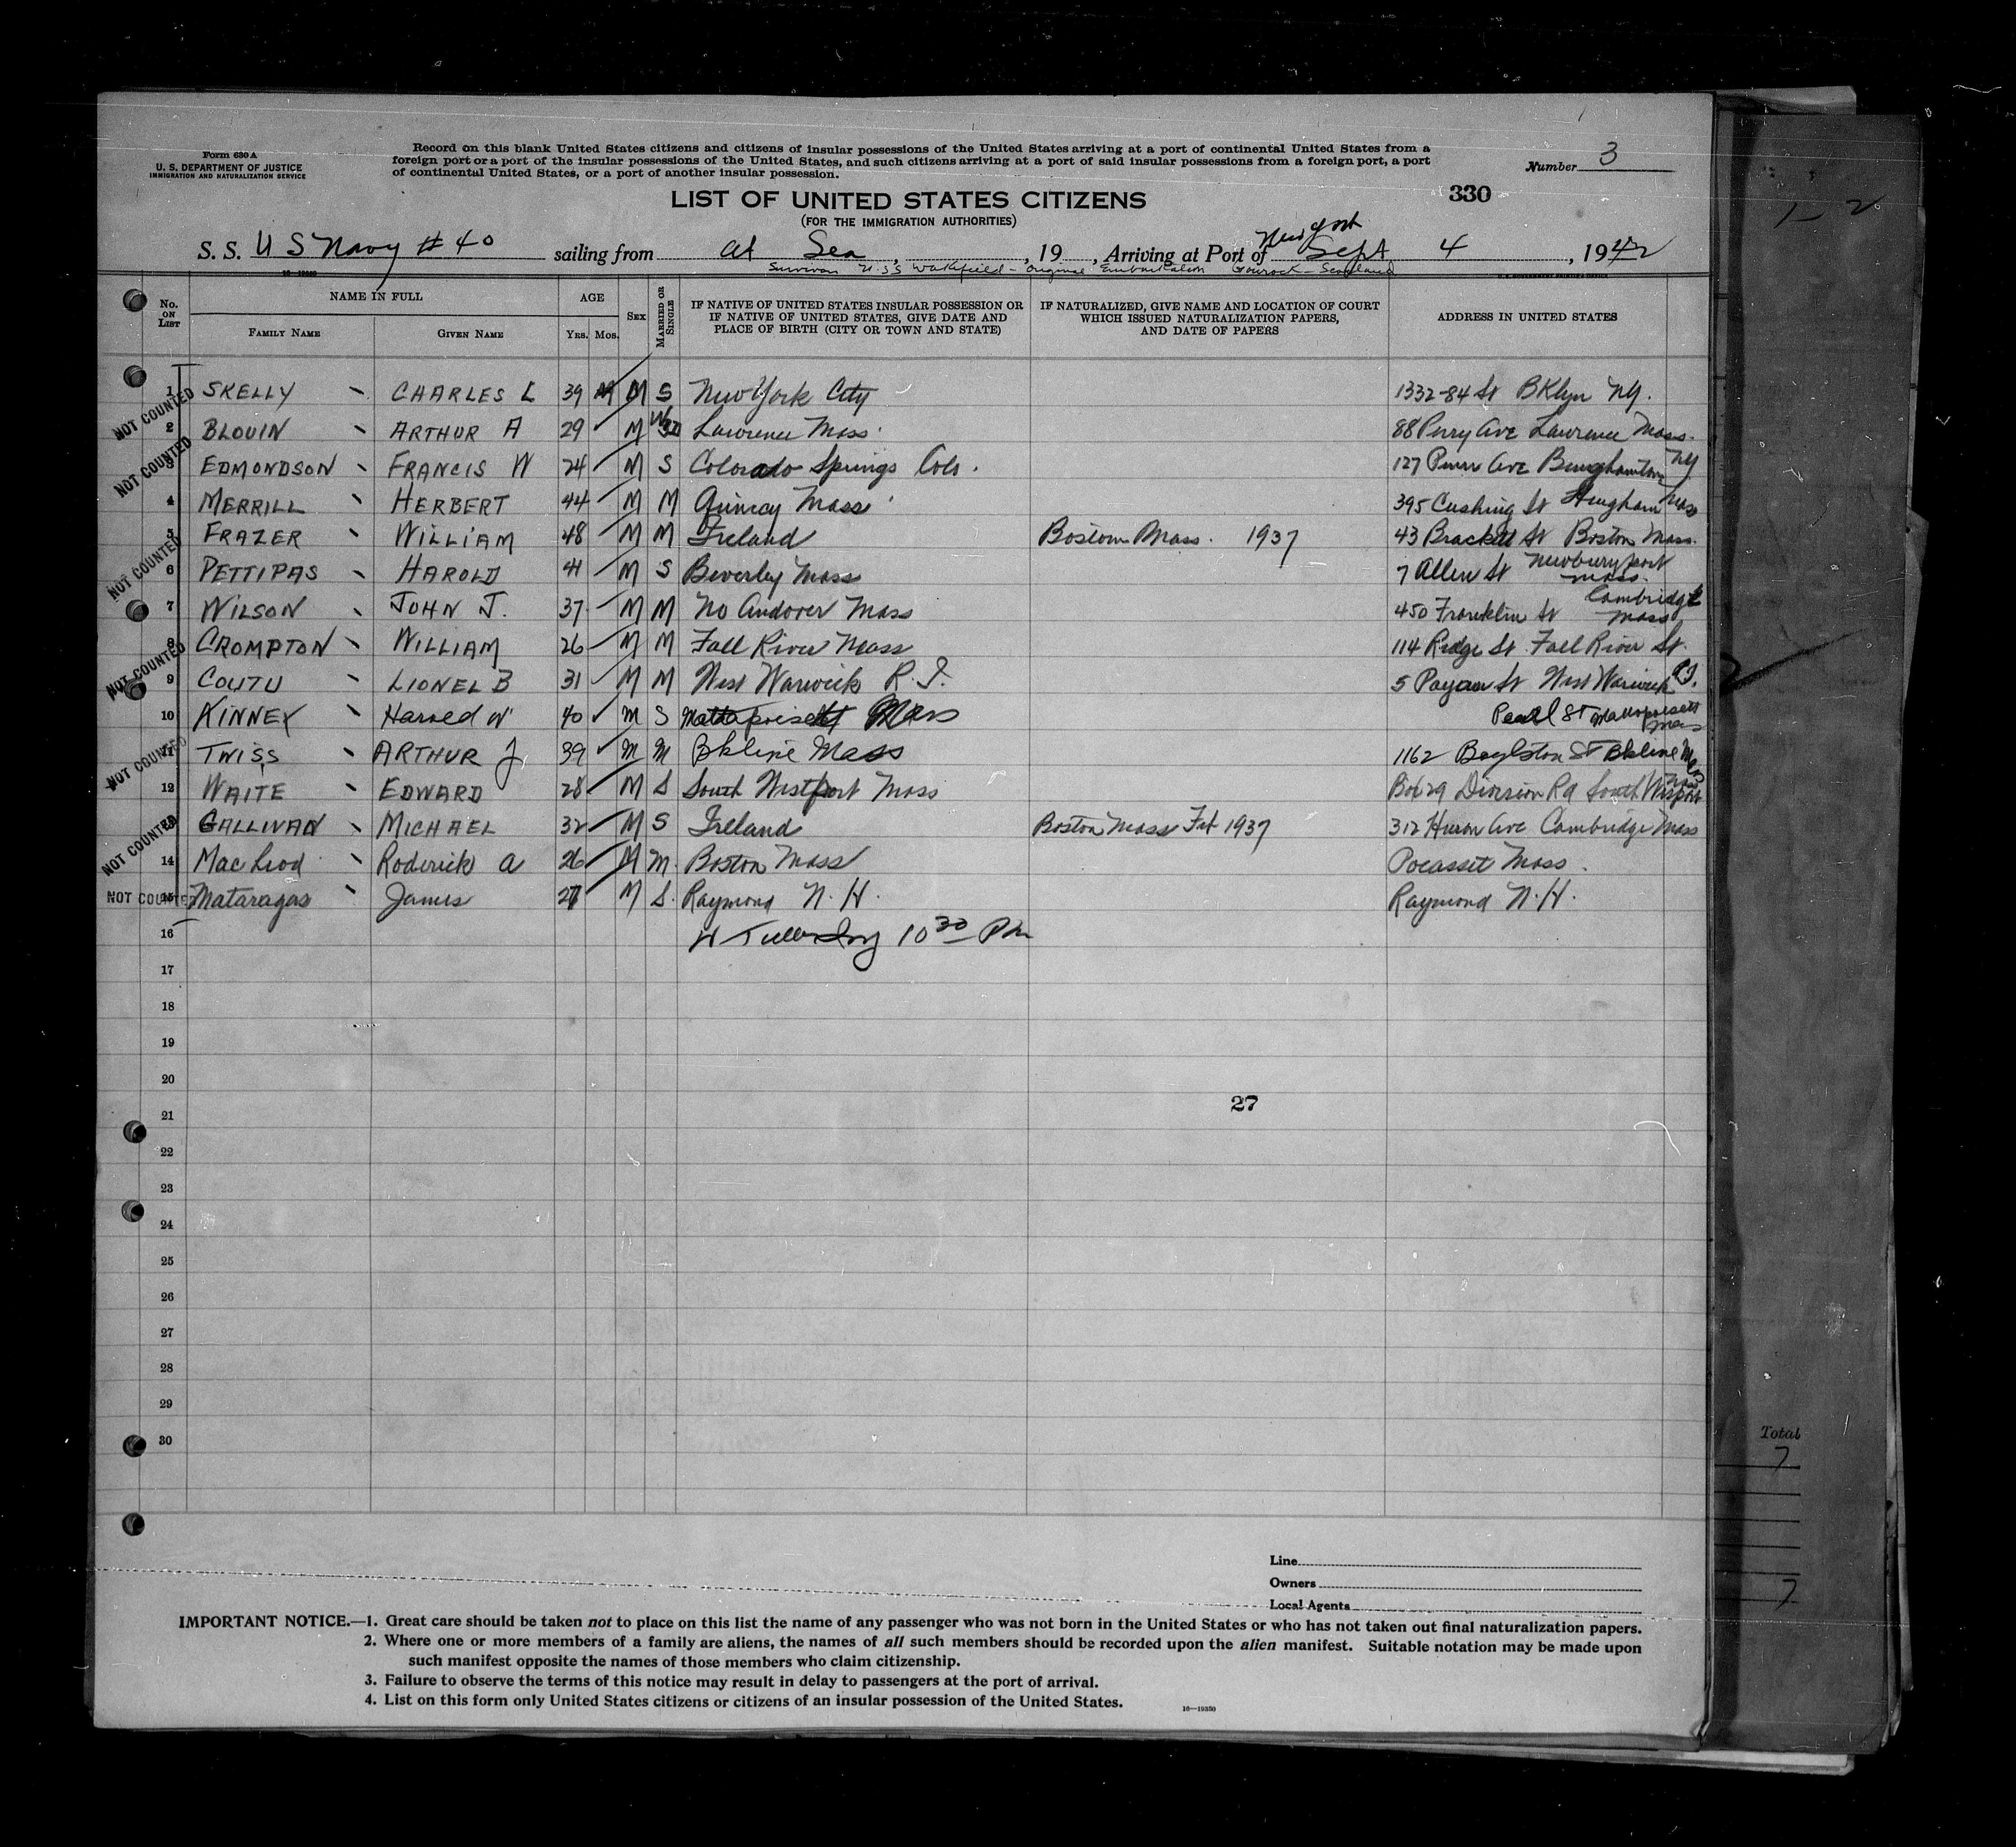 Form 630 A
U. S. DEPARTMENT OF JUSTICE
IMMIGRATION AND NATURALIZATION SERVICE
Record on this blank United States citizens and citizens of insular possessions of the United States arriving at a port of continental United States from a
foreign port or a port of the insular possessions of the United States, and such citizens arriving at a port of said insular possessions from a foreign port, a port
of continental United States, or a port of another insular possession.
Number 3
LIST OF UNITED STATES CITIZENS
(FOR THE IMMIGRATION AUTHORITIES)
330
S. S. U S Navy # 40 sailing from at Sea, , 19 , Arriving at Port of New York Sept 4, 1942
U.S.S Wakefield - original Embarkation Gourock - Scotland
No. ON LIST
NAME IN FULL
FAMILY NAME
GIVEN NAME
AGE
YRS. MOS.
SEX
MARRIED OR SINGLE
IF NATIVE OF UNITED STATES INSULAR POSSESSION OR
IF NATIVE OF UNITED STATES, GIVE DATE AND
PLACE OF BIRTH (CITY OR TOWN AND STATE)
IF NATURALIZED, GIVE NAME AND LOCATION OF COURT
WHICH ISSUED NATURALIZATION PAPERS,
AND DATE OF PAPERS
ADDRESS IN UNITED STATES
1 SKELLY - CHARLES L 39 M M S New York City 1332-84 St BKlyn NY.
NOT COUNTED
2 BLOUIN - ARTHUR A 29 M Lawrence Mass. 88 Perry Ave Lawrence Mass.
NOT COUNTED
3 EDMONDSON - FRANCIS W 24 M S Colorado Springs Colo. 127 Ave Binghamton NY
4 MERRILL - HERBERT 44 M M Quincy Mass 395 Cushing St Hingham Mass
5 FRAZER - WILLIAM 48 M M Ireland Boston Mass. 1937 43 Brackett St Boston Mass.
NOT COUNTED
6 PETTIPAS - HAROLD 41 M S Beverley Mass 7 Allen St Newburyport Mass.
7 WILSON - JOHN J. 37 M M No Andover Mass 450 Franklin St Cambridge Mass
8 CROMPTON - WILLIAM 26 M M Fall River Mass 114 Ridge St Fall River St.
NOT COUNTED
9 COUTU - LIONEL B 31 M M West Warwick R.I. 5 Payan St West Warwick R.I.
10 KINNEY - Harold W 40 M S Mattapoisett Mass Pearl St Mattapoisett Mass
NOT COUNTED
11 TWISS - ARTHUR J 39 M M Bkline Mass 1162 Boylston ST Bkline Mass
12 WAITE - EDWARD 28 M S South Westport Mass Box 29 Division Rd South Westport Mass
NOT COUNTED
13 GALLIVAN - MICHAEL 32 M S Ireland Boston Mass Feb 1937 312 Huron Ave Cambridge Mass
14 MacLeod - Roderick A 26 M M. Boston Mass Pocasset Mass.
NOT COUNTED
15 Mataragas - James 27 M S. Raymond N.H. Raymond N.H.
16 10 30 Pm
17
18
19
20
21
27
22
23
24
25
26
27
28
29
30
Line
Owners
Local Agents
IMPORTANT NOTICE.—1. Great care should be taken not to place on this list the name of any passenger who was not born in the United States or who has not taken out final naturalization papers.
2. Where one or more members of a family are aliens, the names of all such members should be recorded upon the alien manifest. Suitable notation may be made upon
such manifest opposite the names of those members who claim citizenship.
3. Failure to observe the terms of this notice may result in delay to passengers at the port of arrival.
4. List on this form only United States citizens or citizens of an insular possession of the United States.
16—19350
1 - 2
2
Total
7
7